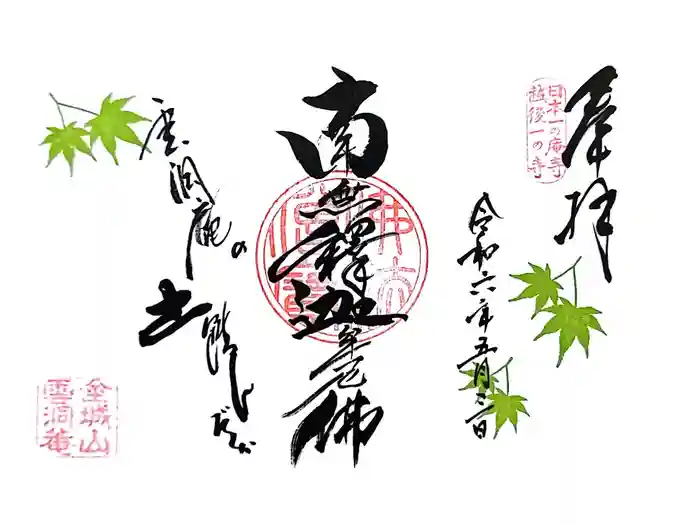 奉拝
日本一の庵寺
越後一の寺
令和六年五月三日
南無釋迦牟尼佛
雲洞庵の
土踏んだか
金城山
雲洞庵